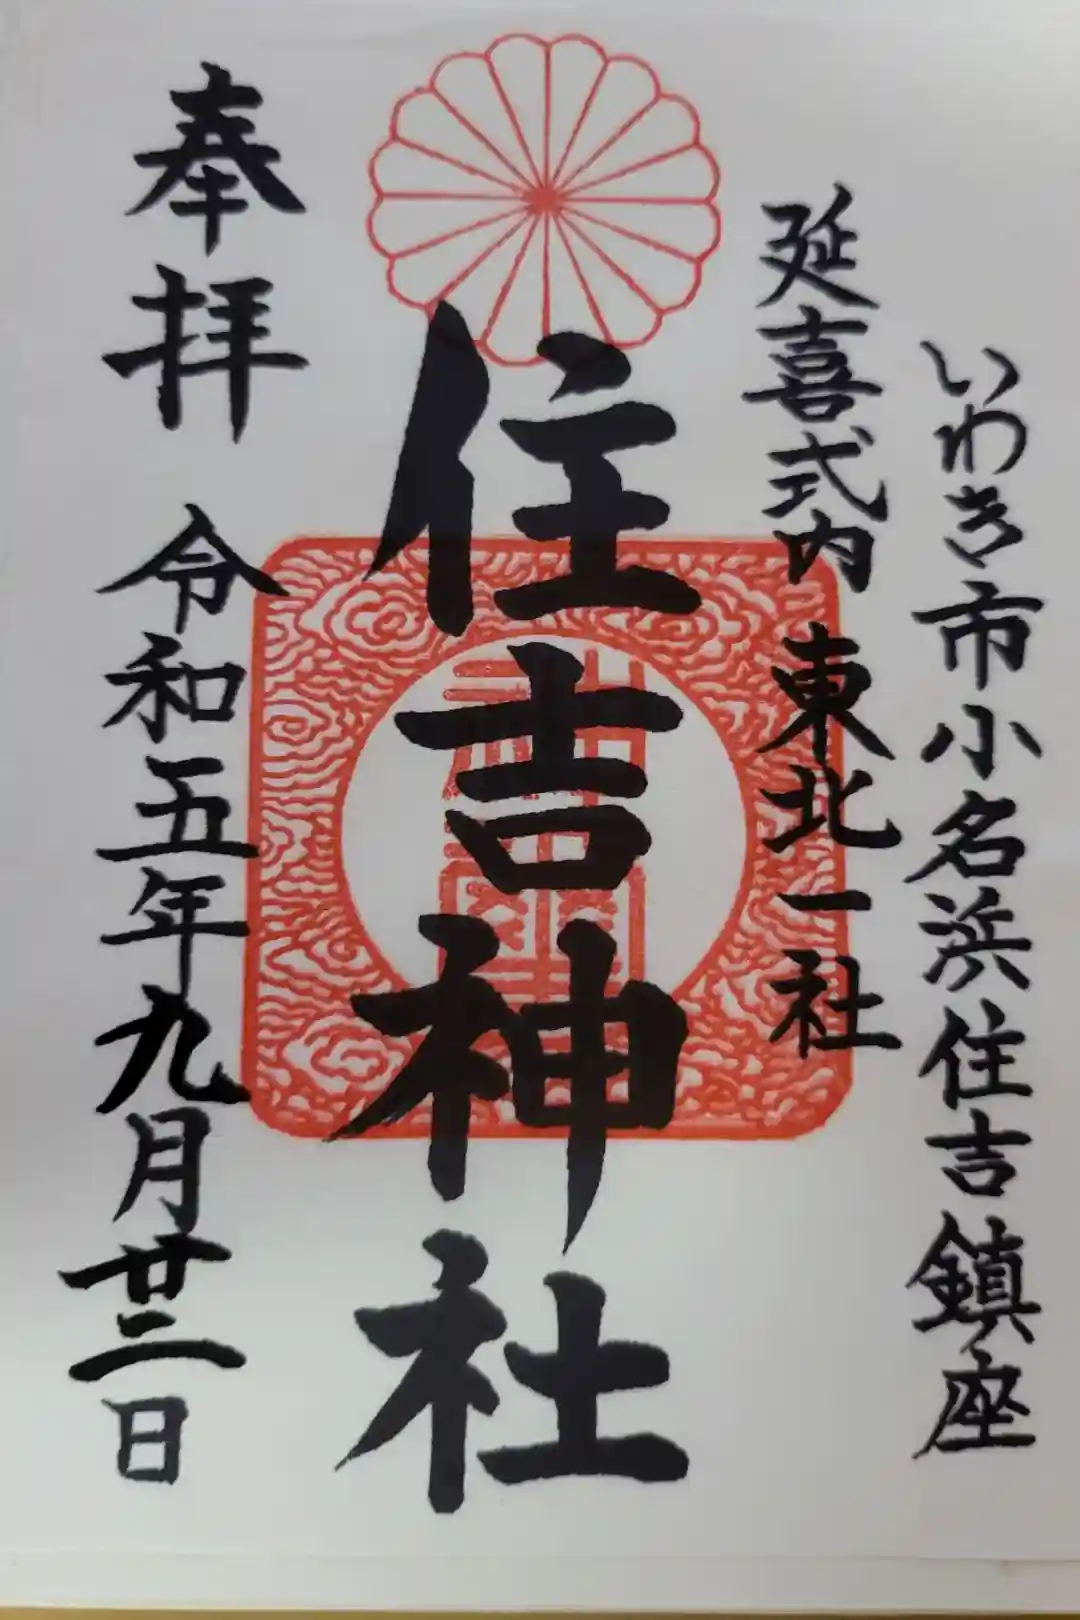 いわき市小名浜住吉鎮座
延喜式内 東北一社
住吉神社
奉拝 令和五年九月廿二日